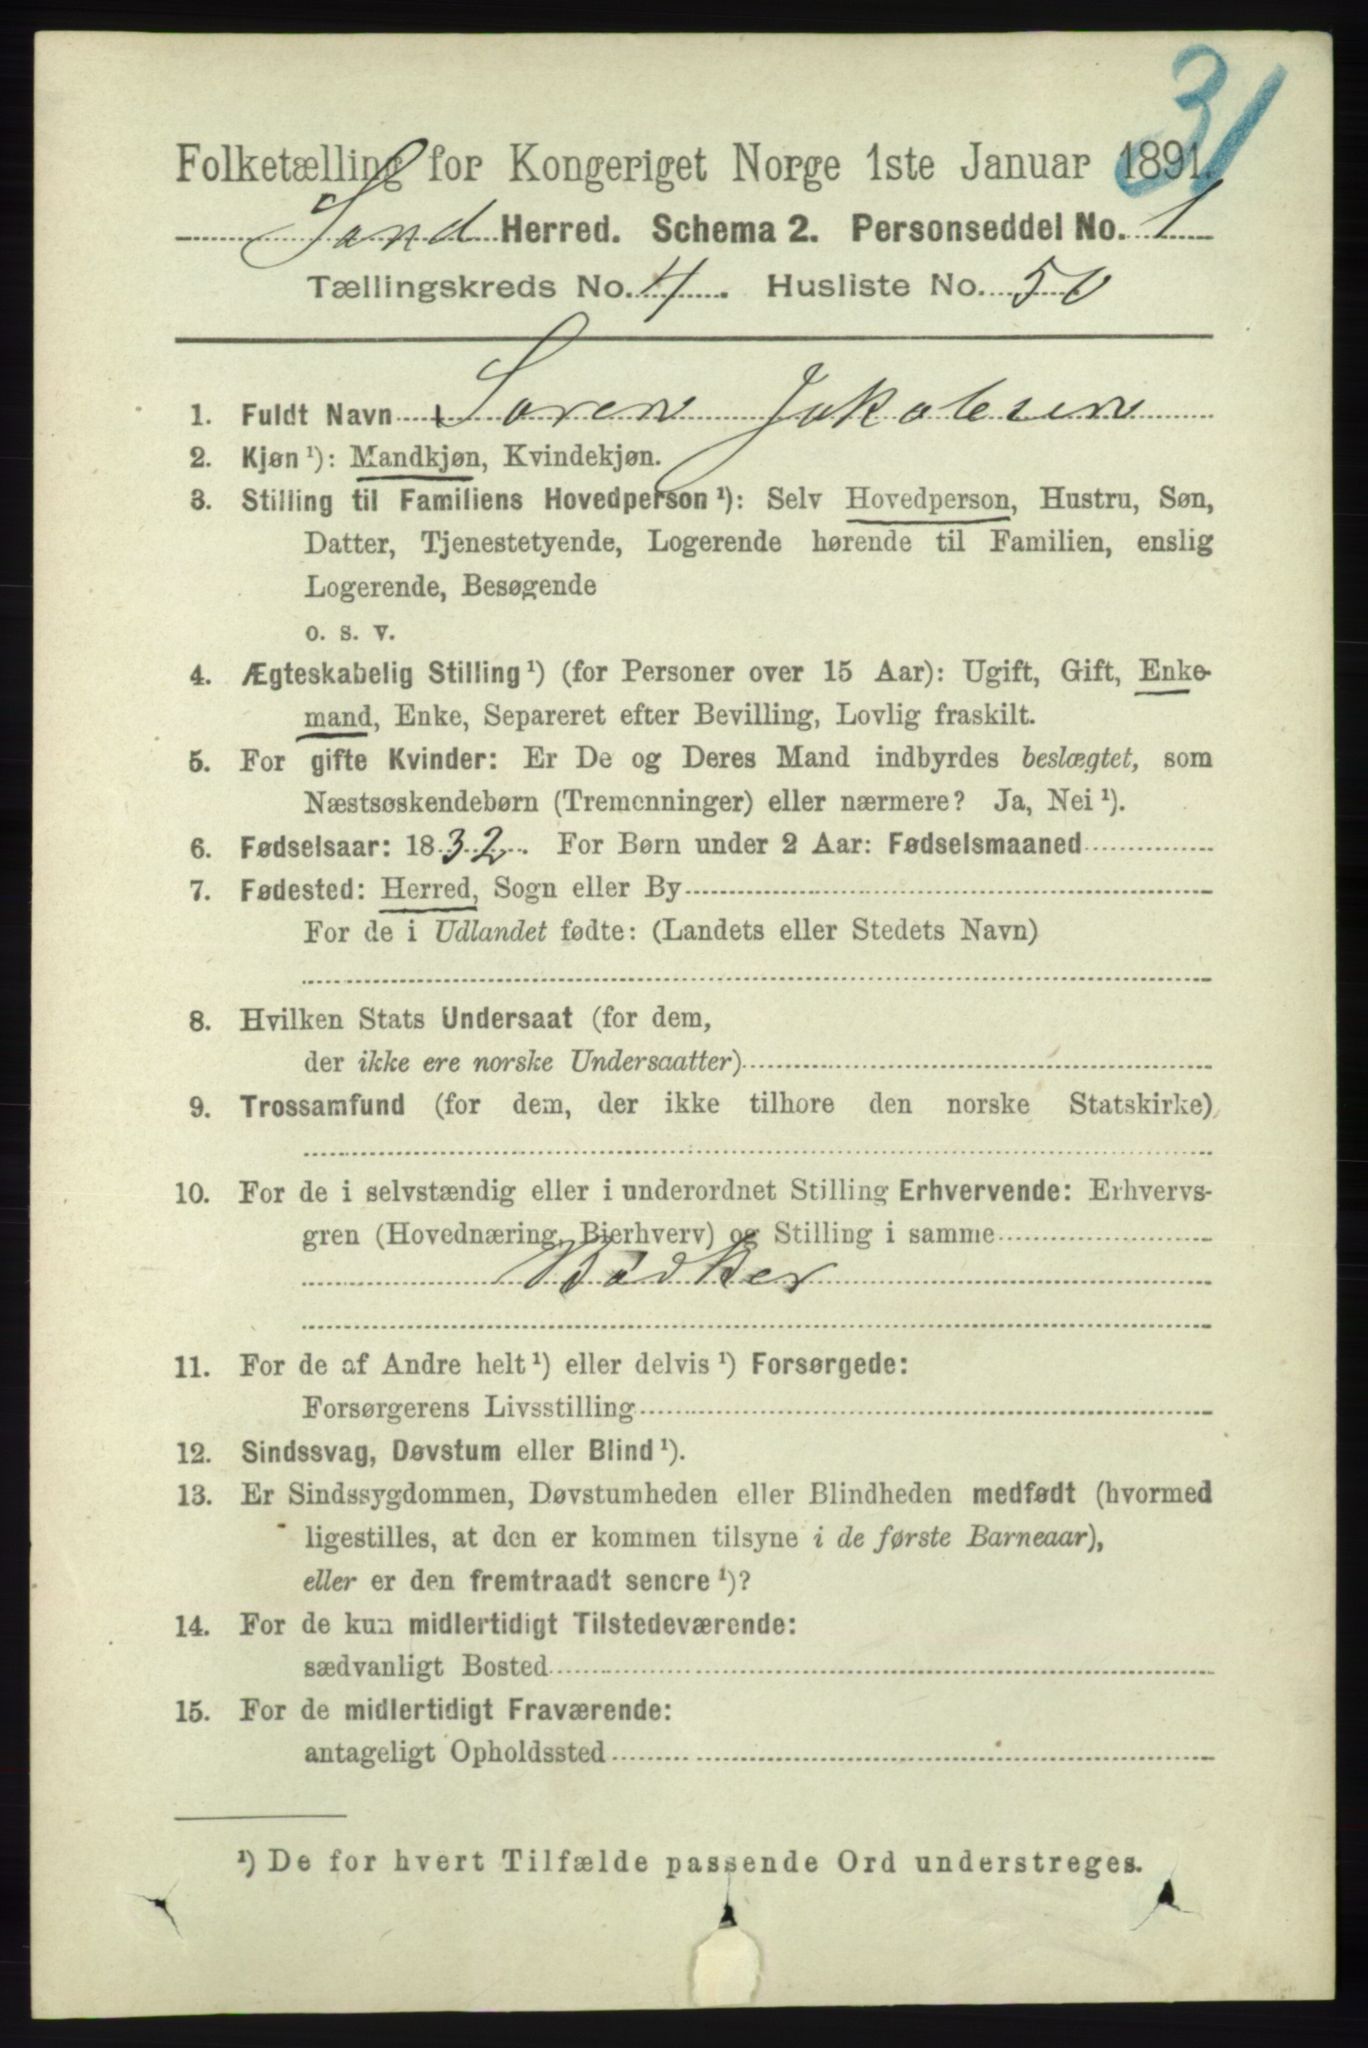 31
Folketælling for Kongeriget Norge 1ste Januar 1891.
Sand Herred. Schema 2. Personseddel No. 1
Tællingskreds No. 4. Husliste No. 50
1. Fuldt Navn Soren Jakobsen
2. Kjøn ¹): Mandkjøn, Kvindekjøn.
3. Stilling til Familiens Hovedperson ¹): Selv Hovedperson, Hustru, Søn,
Datter, Tjenestetyende, Logerende hørende til Familien, enslig
Logerende, Besøgende
o. s. v.
4. Ægteskabelig Stilling ¹) (for Personer over 15 Aar): Ugift, Gift, Enke-
mand, Enke, Separeret efter Bevilling, Lovlig fraskilt.
5. For gifte Kvinder: Er De og Deres Mand indbyrdes beslægtet, som
Næstsøskendebørn (Tremenninger) eller nærmere? Ja, Nei ¹).
6. Fødselsaar: 1832. For Børn under 2 Aar: Fødselsmaaned
7. Fødested: Herred, Sogn eller By
For de i Udlandet fødte: (Landets eller Stedets Navn)
8. Hvilken Stats Undersaat (for dem,
der ikke ere norske Undersaatter)
9. Trossamfund (for dem, der ikke tilhore den norske Statskirke)
10. For de i selvstændig eller i underordnet Stilling Erhvervende: Erhvervs-
gren (Hovednæring, Bierhverv) og Stilling i samme
Bödker
11. For de af Andre helt ¹) eller delvis ¹) Forsørgede:
Forsørgerens Livsstilling
12. Sindssvag, Døvstum eller Blind ¹).
13. Er Sindssygdommen, Døvstumheden eller Blindheden medfødt (hvormed
ligestilles, at den er kommen tilsyne i de første Barneaar),
eller er den fremtraadt senere ¹)?
14. For de kun midlertidigt Tilstedeværende:
sædvanligt Bosted
15. For de midlertidigt Fraværende:
antageligt Opholdssted
¹) De for hvert Tilfælde passende Ord understreges.